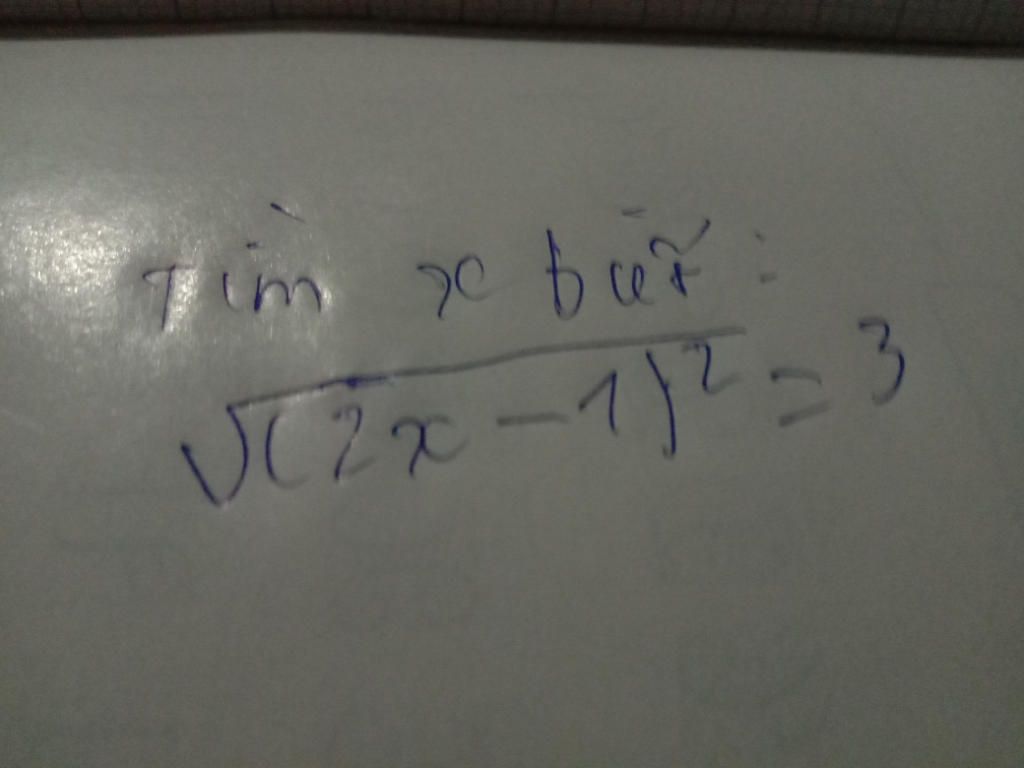 Tìm x biết :
√(2x - 1)² = 3